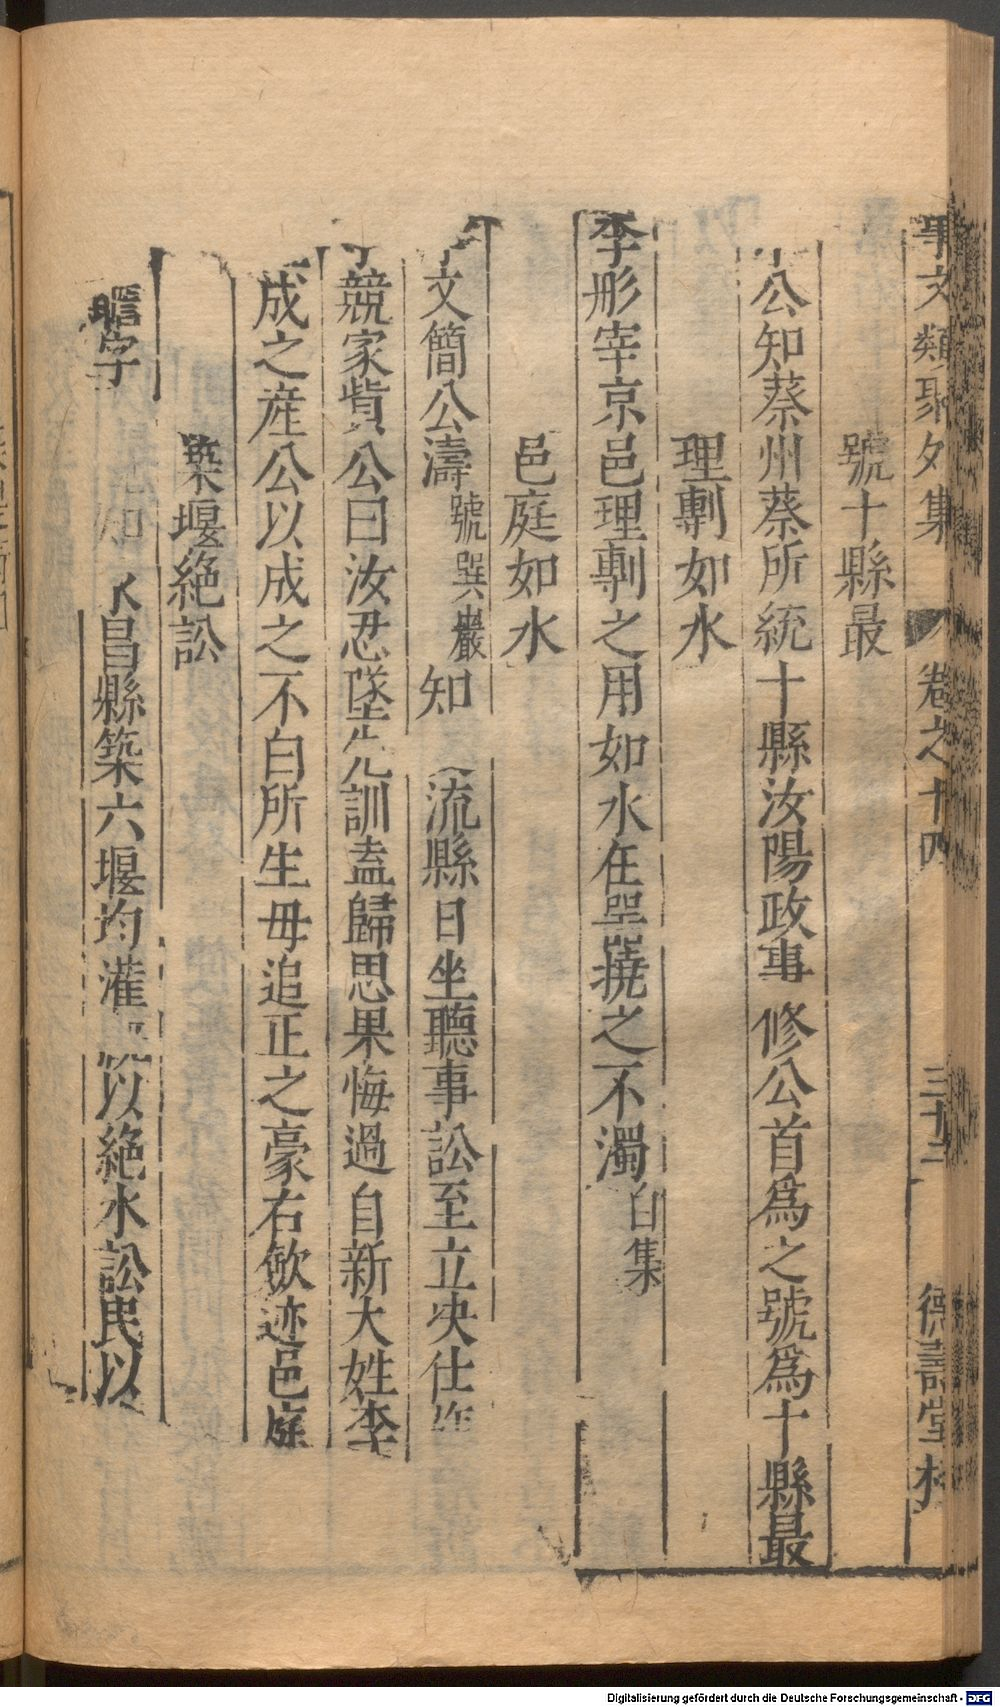 事文類聚外集 卷之十四 三十二 德壽堂梓
號十縣最
公知蔡州蔡所統十縣汝陽政事 修公首為之號為十縣最
理剸如水
李彤宰京邑理剸之用如水在器撓之不濁白集
邑庭如水
文簡公濤號巽巖知 流縣日坐聽事訟至立決仕
競家貲公曰汝忍墜先訓盍歸思果悔過自新大姓李
成之產公以成之不白所生毋追正之豪右歛迹邑庭
築堰絕訟
字 昌縣築六堰均灌 以絕水訟民以
Digitalisierung gefördert durch die Deutsche Forschungsgemeinschaft - DFG